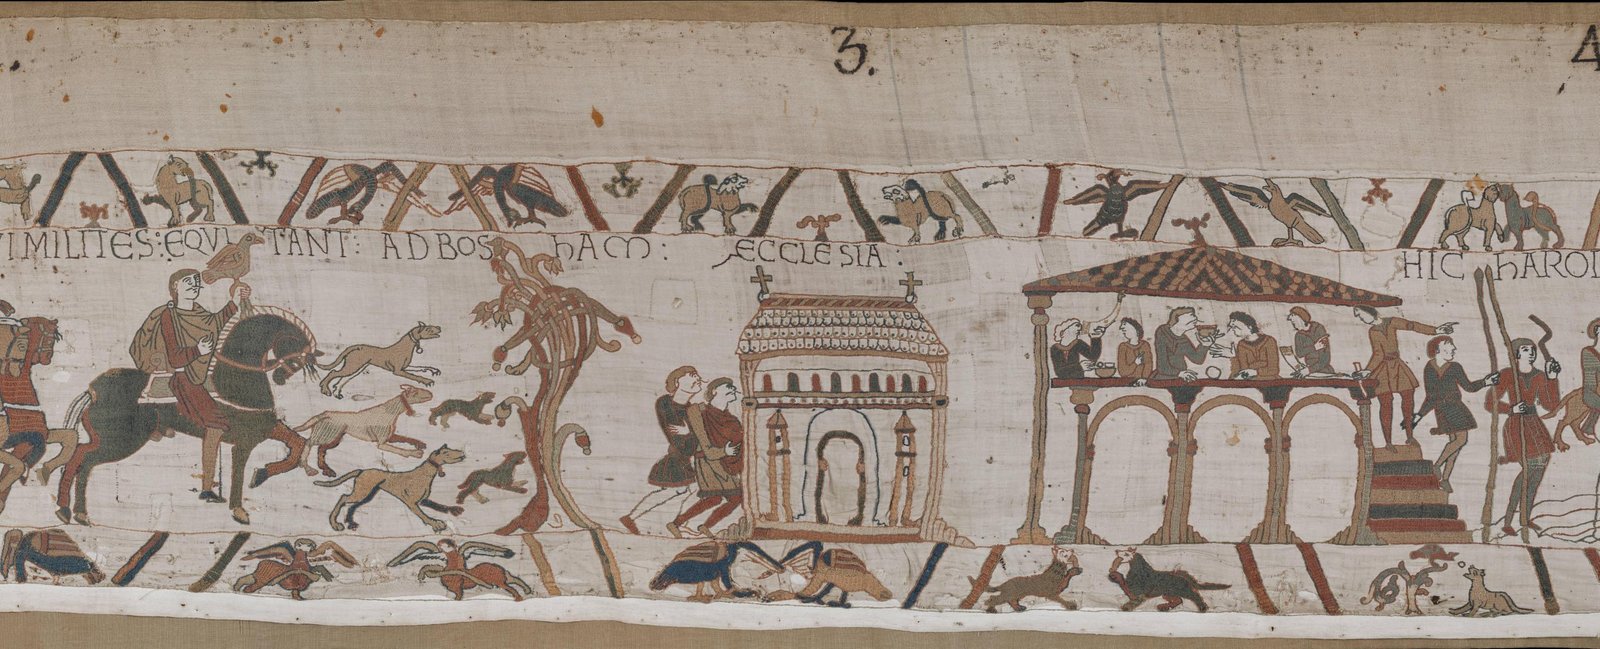 3. 4
VI MILITES: EQVITANT: AD BOSHAM: ECCLESIA: HIC HAROL